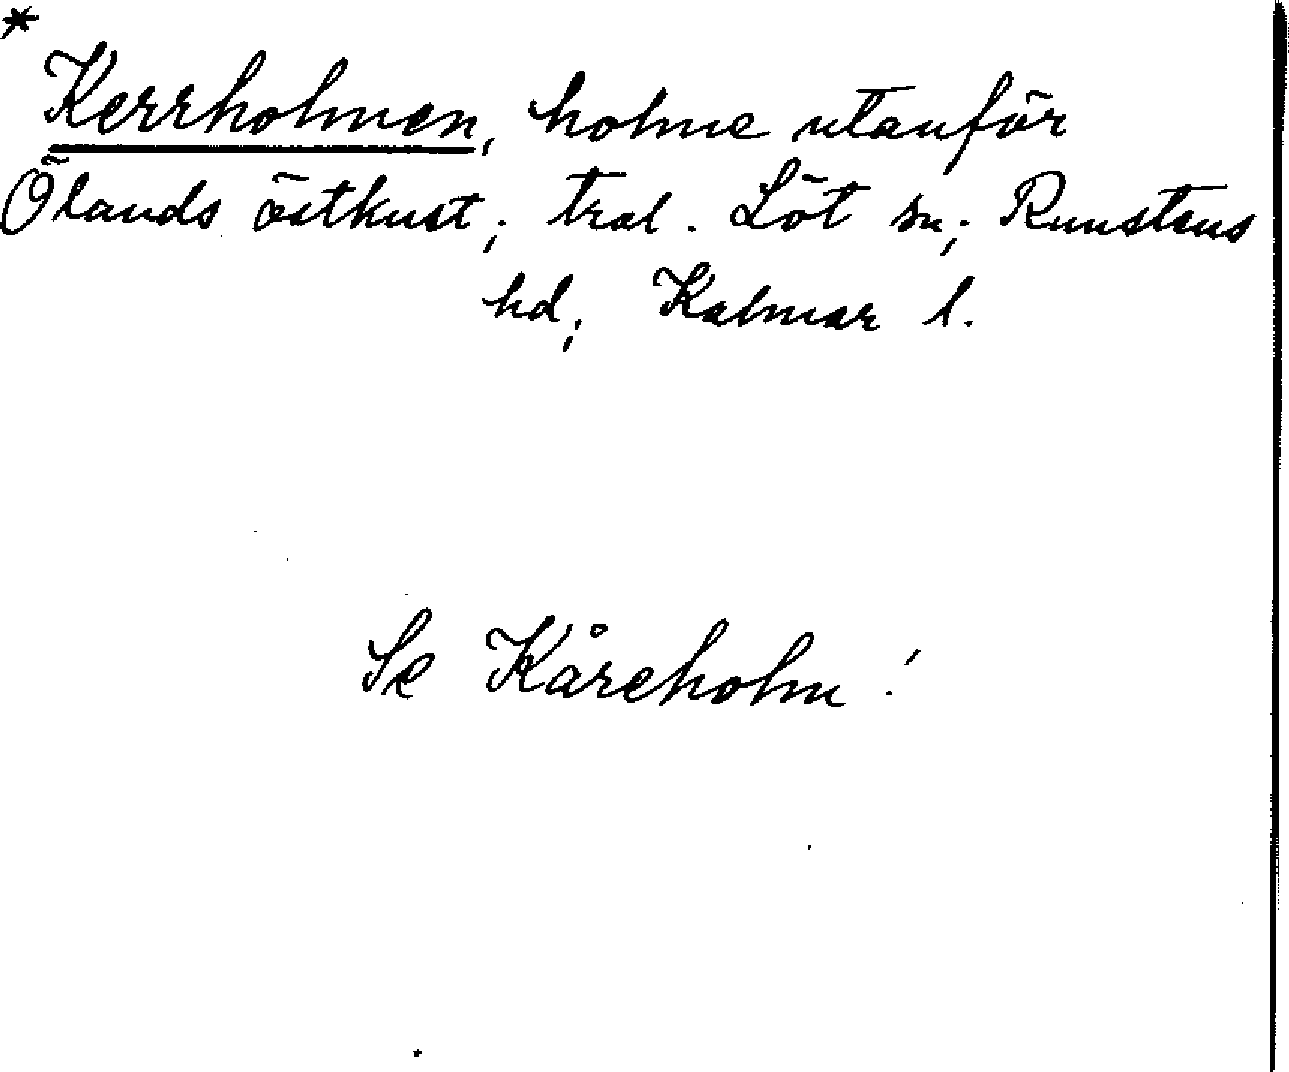 *
Kerrholmen, holme utanför
Ölands östkust; trol. Löt sn; Runstens
hd; Kalmar l.
Se Kåreholm!